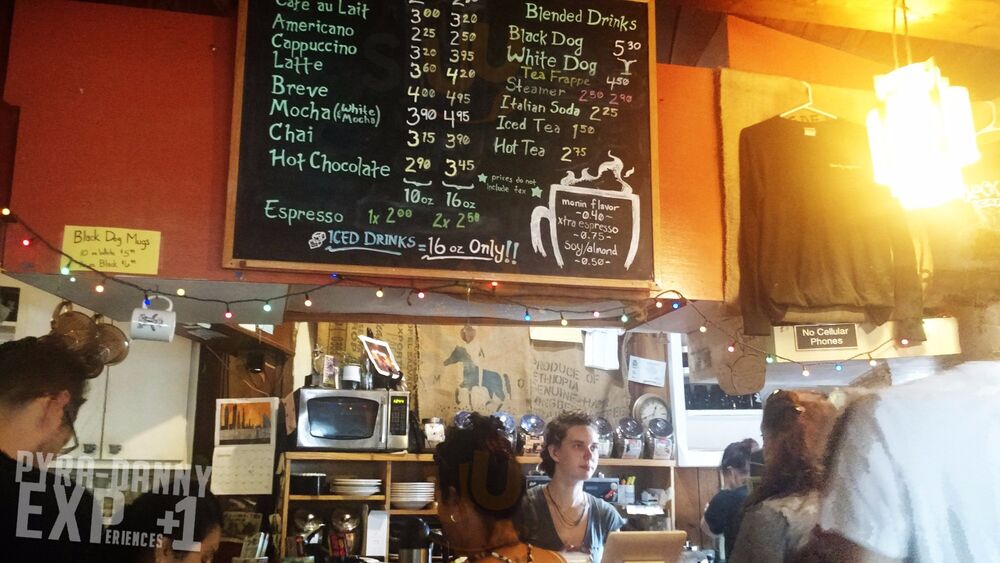 Cafe au Lait 3.00 3.20
Americano 2.25 2.50
Cappuccino 3.20 3.95
Latte 3.60 4.20
Breve 4.00 4.95
Mocha (White & Mocha) 3.90 4.95
Chai 3.75 3.90
Hot Chocolate 2.90 3.45
10oz 16oz
Espresso 1x 2.00 2x 2.50
ICED DRINKS = 16 oz Only!!
Blended Drinks
Black Dog 5.30
White Dog
Tea Frappe 4.50
Steamer 2.50 2.90
Italian Soda 2.25
Iced Tea 1.50
Hot Tea 2.75
prices do not
include tax
monin flavor
-0.40-
xtra espresso
-0.75-
Soy/almond
-0.50-
Black Dog Mugs
No Cellular
Phones
PRODUCE OF
ETHIOPIA
PYRA-DANNY
EXP
ERIENCES +1